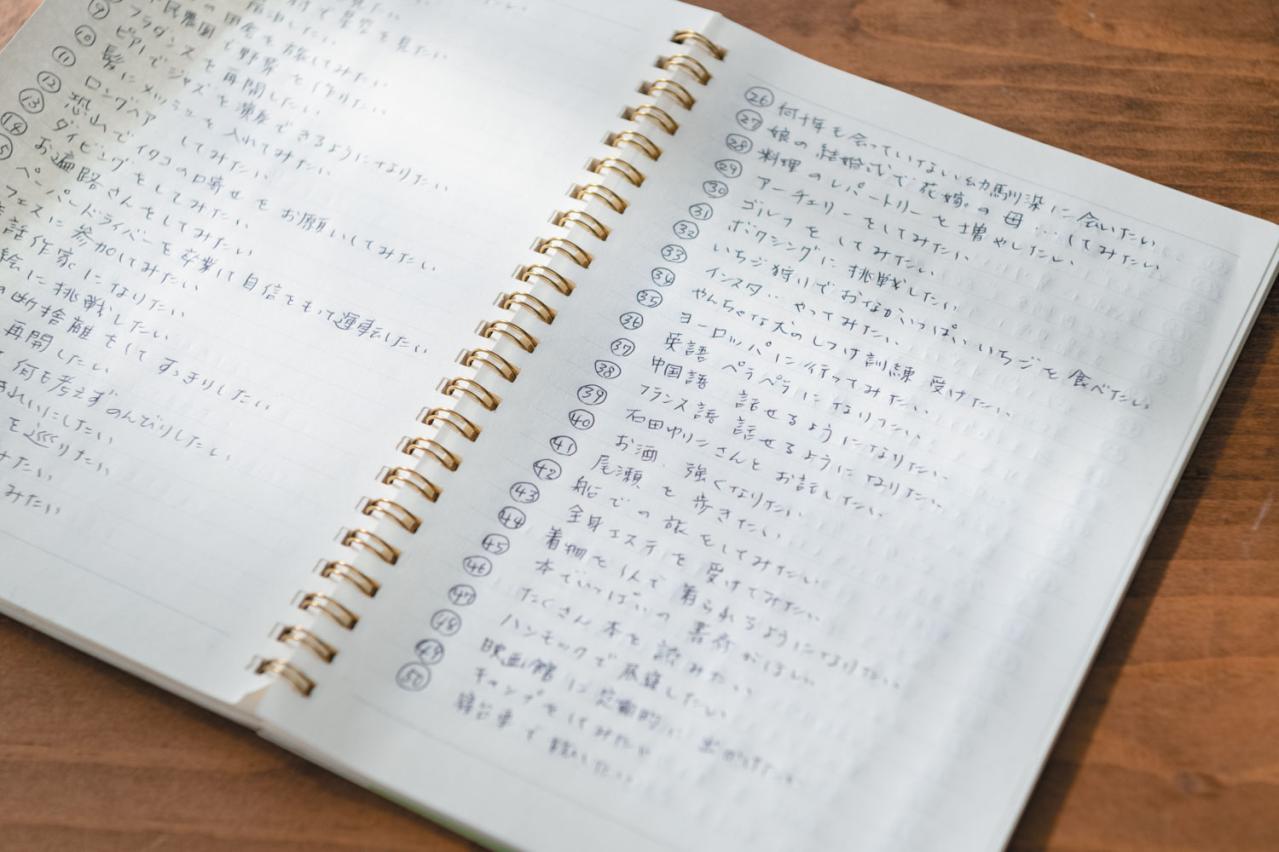 ⑨
⑩ フラダンスを再開したい
⑪ ピアノでジャズを演奏できるようになりたい
⑫ 髪にメッシュを入れてみたい
⑬ ロングヘアしてみたい
⑭ 恐山でイタコの口寄せをお願いしてみたい
ダイビングをしてみたい
お遍路さんをしてみたい
ペーパードライバーを卒業して自信をもって運転したい
フェスに参加してみたい
話作家になりたい
絵に挑戦したい
断捨離をしてすっきりしたい
再開したい
何も考えずのんびりしたい
きれいにしたい
を巡りたい
みたい
㉖ 何十年も会っていない幼馴染に会いたい
㉗ 娘の結婚式で花嫁の母…してみたい
㉘ 料理のレパートリーを増やしたい
㉙ アーチェリーをしてみたい
㉚ ゴルフをしてみたい
㉛ ボクシングに挑戦したい
㉜ いちご狩りでおなかいっぱいいちごを食べたい
㉝ インスタ…やってみたい
㉞ やんちゃな犬のしつけ訓練受けたい
㉟ ヨーロッパに行ってみたい
㊱ 英語ペラペラになりたい
㊲ 中国語話せるようになりたい
㊳ フランス語話せるようになりたい
㊴ 石田ゆり子さんとお話したい
㊵ お酒強くなりたい
㊶ 尾瀬を歩きたい
㊷ 船での旅をしてみたい
㊸ 全身エステを受けてみたい
㊹ 着物を1人で着られるようになりたい
㊺ 本でいっぱいの書斎がほしい
㊻ たくさん本を読みたい
㊼ ハンモックで昼寝したい
㊽ 映画館に定期的に出かけたい
㊾ キャンプをしてみたい
㊿ 寝台車で旅したい